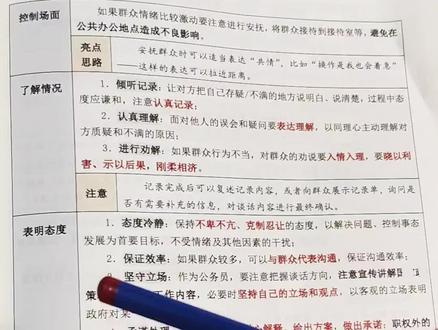 控制场面
如果群众情绪比较激动要注意进行安抚，将群众接待到接待室等，避免在
公共办公地点造成不良影响。
亮点
思路
安抚群众时可以适当表达“共情”，比如“换作是我也会着急”
——这样的表达可以拉近距离。
了解情况
1. 倾听记录：让对方把自己存疑/不满的地方说明白、说清楚，过程中态
度应谦和，注意认真记录；
2. 认真理解：面对他人的误会和疑问要表达理解，以同理心主动理解对
方质疑和不满的原因；
3. 进行劝解：如果群众行为不当，对群众的劝说要入情入理，要晓以利
害、示以后果，刚柔相济。
注意
记录完成后可以复述记录内容，或者向群众展示记录单，询问是
否有需要补充的信息，对谈话内容进行最终确认。
表明态度
1. 态度冷静：保持不卑不亢、克制忍让的态度，以解决问题、控制事态
发展为首要目标，不受情绪及其他因素的干扰；
2. 保证效率：如果群众较多，可以与群众代表沟通，保证沟通效率；
3. 坚守立场：作为公务员，要注意把握谈话方向，注意宣传讲解
策 工作内容，必要时坚持自己的立场和观点，以客观的立场表明
政府对
心解释，给出方案，做出承诺；职权外的